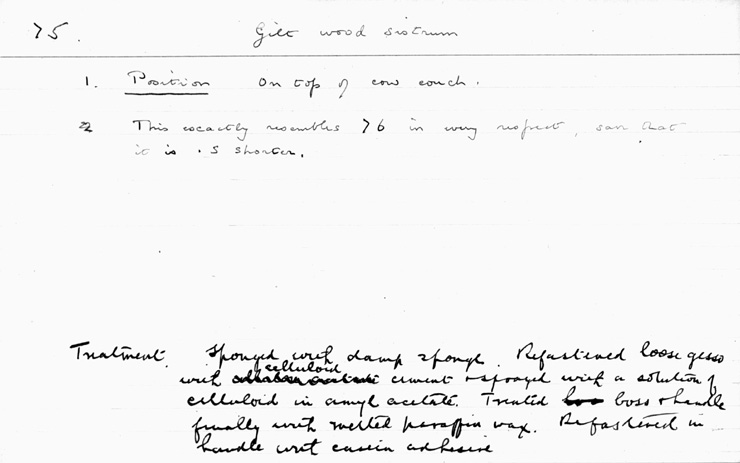 75. Gilt wood sistrum
1. Position On top of cow couch.
2 This exactly resembles 76 in every respect, save that
it is .5 shorter.
Treatment. Sponged with damp sponge. Refastened loose gesso
with celluloid cement & sprayed with a solution of
celluloid in amyl acetate. Treated boss & handle
finally with melted paraffin wax. Refastened in
handle with casein adhesive